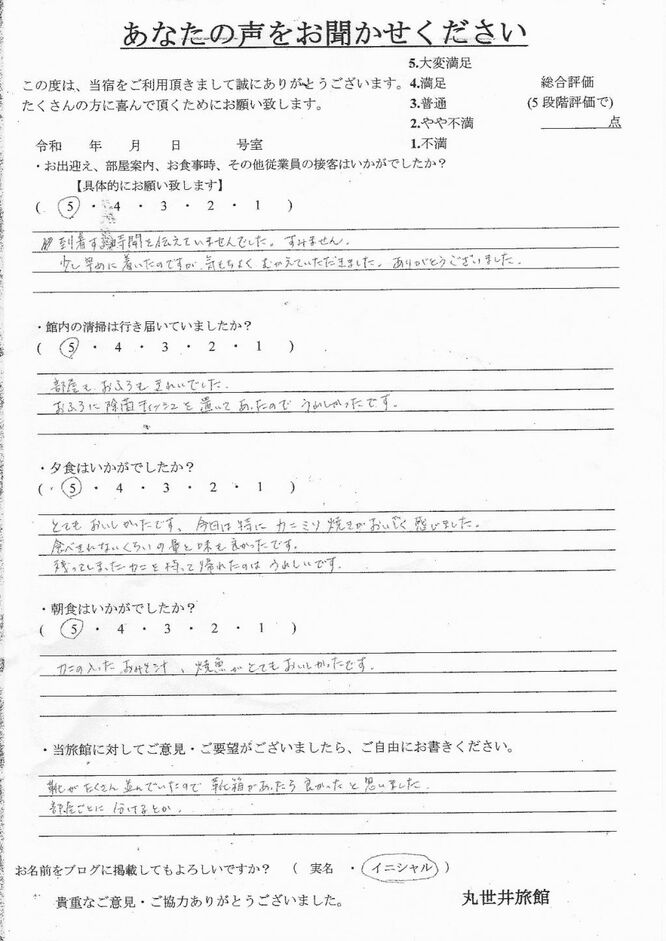 あなたの声をお聞かせください
この度は、当宿をご利用頂きまして誠にありがとうございます。
たくさんの方に喜んで頂くためにお願い致します。
5.大変満足
4.満足
3.普通
2.やや不満
1.不満
総合評価
(5 段階評価で)
点
令和　年　月　日　号室
・お出迎え、部屋案内、お食事時、その他従業員の接客はいかがでしたか？
【具体的にお願い致します】
( 5 ・ 4 ・ 3 ・ 2 ・ 1 )
到着する時間を伝えていませんでした。すみません。
少し早めに着いたのですが、気もちよくむかえていただきました。ありがとうございました。
・館内の清掃は行き届いていましたか？
( 5 ・ 4 ・ 3 ・ 2 ・ 1 )
部屋もおふろもきれいでした。
おふろに除菌ティッシュを置いてあったのでうれしかったです。
・夕食はいかがでしたか？
( 5 ・ 4 ・ 3 ・ 2 ・ 1 )
とてもおいしかったです。今回は特にカニミソ焼きがおいしく感じました。
食べきれないくらいの量と味も良かったです。
残ってしまったカニを持って帰れたのはうれしいです。
・朝食はいかがでしたか？
( 5 ・ 4 ・ 3 ・ 2 ・ 1 )
カニの入ったおみそ汁、焼魚がとてもおいしかったです。
・当旅館に対してご意見・ご要望がございましたら、ご自由にお書きください。
靴がたくさん並んでいたので靴箱があったら良かったと思いました。
部屋ごとに分けるとか。
お名前をブログに掲載してもよろしいですか？　( 実名 ・ イニシャル )
貴重なご意見・ご協力ありがとうございました。
丸世井旅館